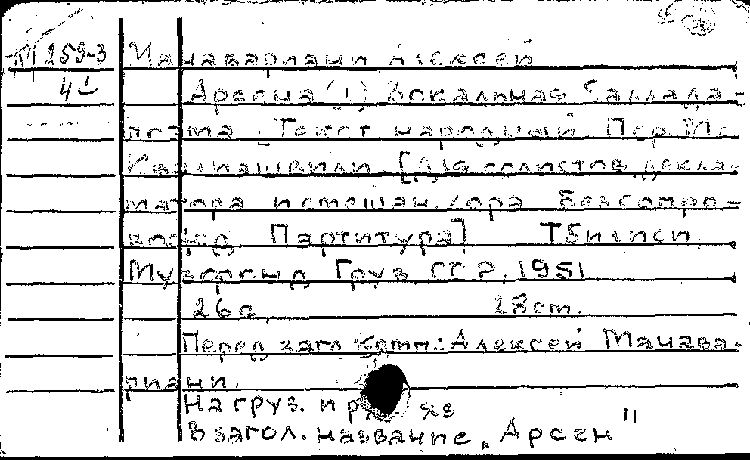 М 259-3 Мачавариани Алексей
4 1 Арсена (!) Вокальная баллада-
поэма. Текст народный. Пер. М.
Квалиашвили. [Для солистов, декла-
матора и смешан. хора без сопро-
вожд. Партитура] Тбилиси,
Музфонд Груз. ССР, 1951
26 с. 28 см.
Перед загл. комп.: Алексей Мачава-
риани.
На груз. и яз
В загол. название „Арсен"